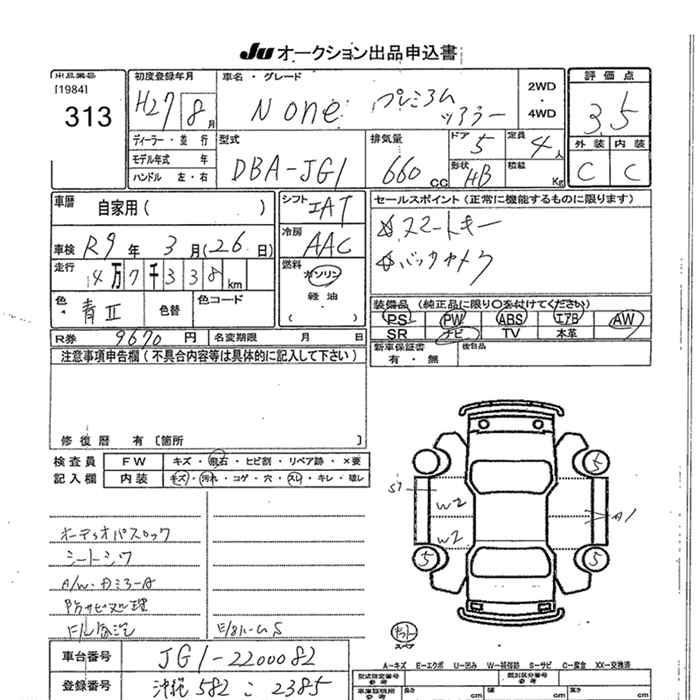 Ju オークション出品申込書
出品番号 初度登録年月 車名・グレード 評価点
[1984] 313
H27 8月 N one プレミアム ツアラー 2WD・4WD 3.5
ディーラー・並行 型式 排気量 ドア 5 定員 4人 外装 内装
モデル年式 年 DBA-JG1 660cc 形状 HB 積載 Kg C C
ハンドル 左・右
車歴 自家用( ) シフト IAT セールスポイント(正常に機能するものに限ります)
車検 R9年 3月(26日) 冷房 AAC スマートキー
走行 4万7千338km 燃料 ガソリン・軽油 バックカメラ
色 青II 色替 色コード 装備品(純正品に限り○を付けてください)
PS PW ABS エアB AW
R券 9670円 名変期限 月 日 SR ナビ TV 本革
注意事項申告欄(不具合内容等は具体的に記入して下さい) 新車保証書 有・無 後日品
修復歴 有[箇所 ]
検査員 FW キズ・飛石・ヒビ割・リペア跡・×要
記入欄 内装 キズ・汚れ・コゲ・穴・スレ・キレ・壊レ
S1 W2 W2 A1
5 5 5
オーディオパスロック
シートシワ
A/W・ドミラーA
防サビ処理
スペア
車台番号 JG1-2200082 A-キズ E-エクボ U-凹み W-補修跡 S-サビ C-腐食 XX-交換済
登録番号 沖縄 582 こ 2385